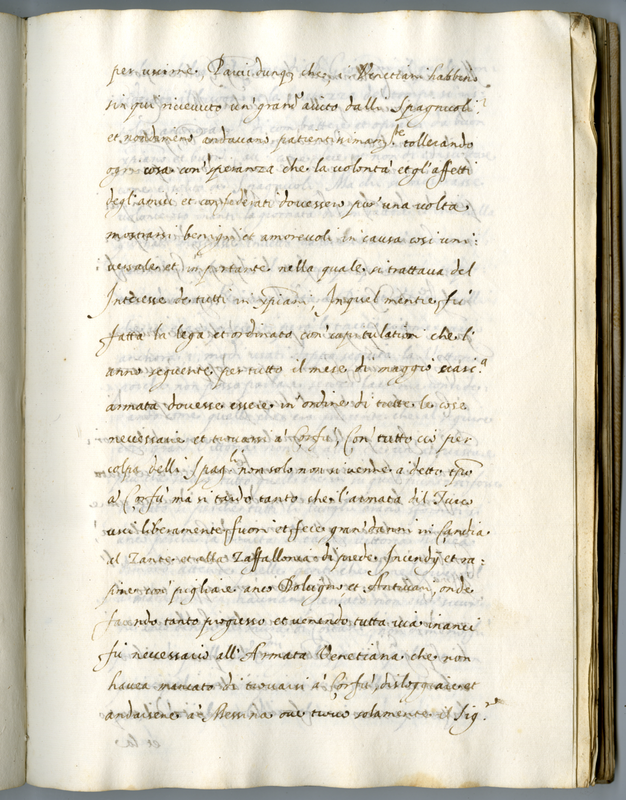 per unirne. Parvi dunq3 che i Venetiani habbino
sin qui ricevuto un gran' aiuto dalli Spagnuoli:
et nondimeno andavano patientissimam.te tollerando
ogni cosa con' speranza che la volontà et gl'affetti
degl'amici et confederati dovessero pur una volta
mostrarsi benigni et amorevoli in causa cosi uni:
versale et importante nella quale si trattava del
Interesse de tutti in xpiani, In quel mentre fù
fatta la lega et ordinato con' capitulationi che l'
anno sequente per tutto il mese di maggio
armata dovesse essere in' ordine di tutte le cose
necessarie et trovarsi à Corfù, Con' tutto ciò per
colpa delli Spag.li non solo non si venne a detto tpo
à Corfù, ma si tardò tanto che l'armata del Turco
usci liberamente fuori et fece gran' danni in Candia
al Zante et alla Zaffallonia di prede, Incendij et ra:
pine, con' pigliare anco Dolcigno, et Antivari, onde
facendo tanto progresso et venendo tutta via inanci
fù necessario all'Armata Venetiana che non
havea mancato di trovarsi à Corfù, disloggiare et
andarsene à Messina ove trovò solamente il Sig.re
et la